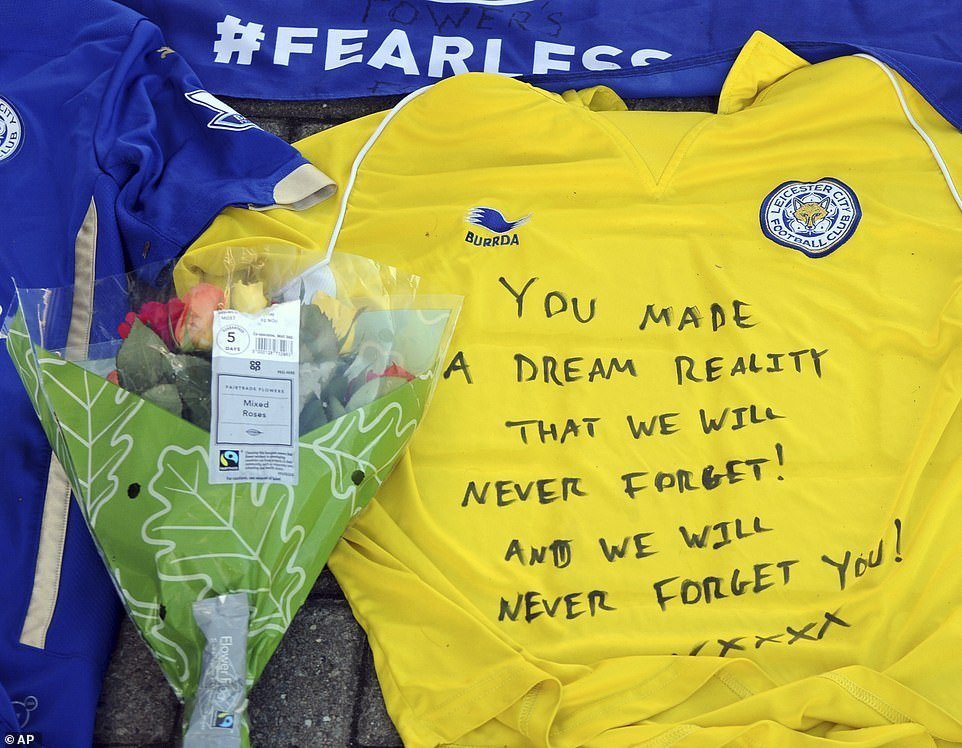 TOWER'S
#FEARLESS
LEICESTER CITY
FOOTBALL CLUB
BURRDA
YOU MADE
A DREAM REALITY
THAT WE WILL
NEVER FORGET!
AND WE WILL
NEVER FORGET YOU!
XXXXX
5
DAYS
CO
OP
FAIRTRADE FLOWERS
Mixed
Roses
FAIRTRADE
© AP